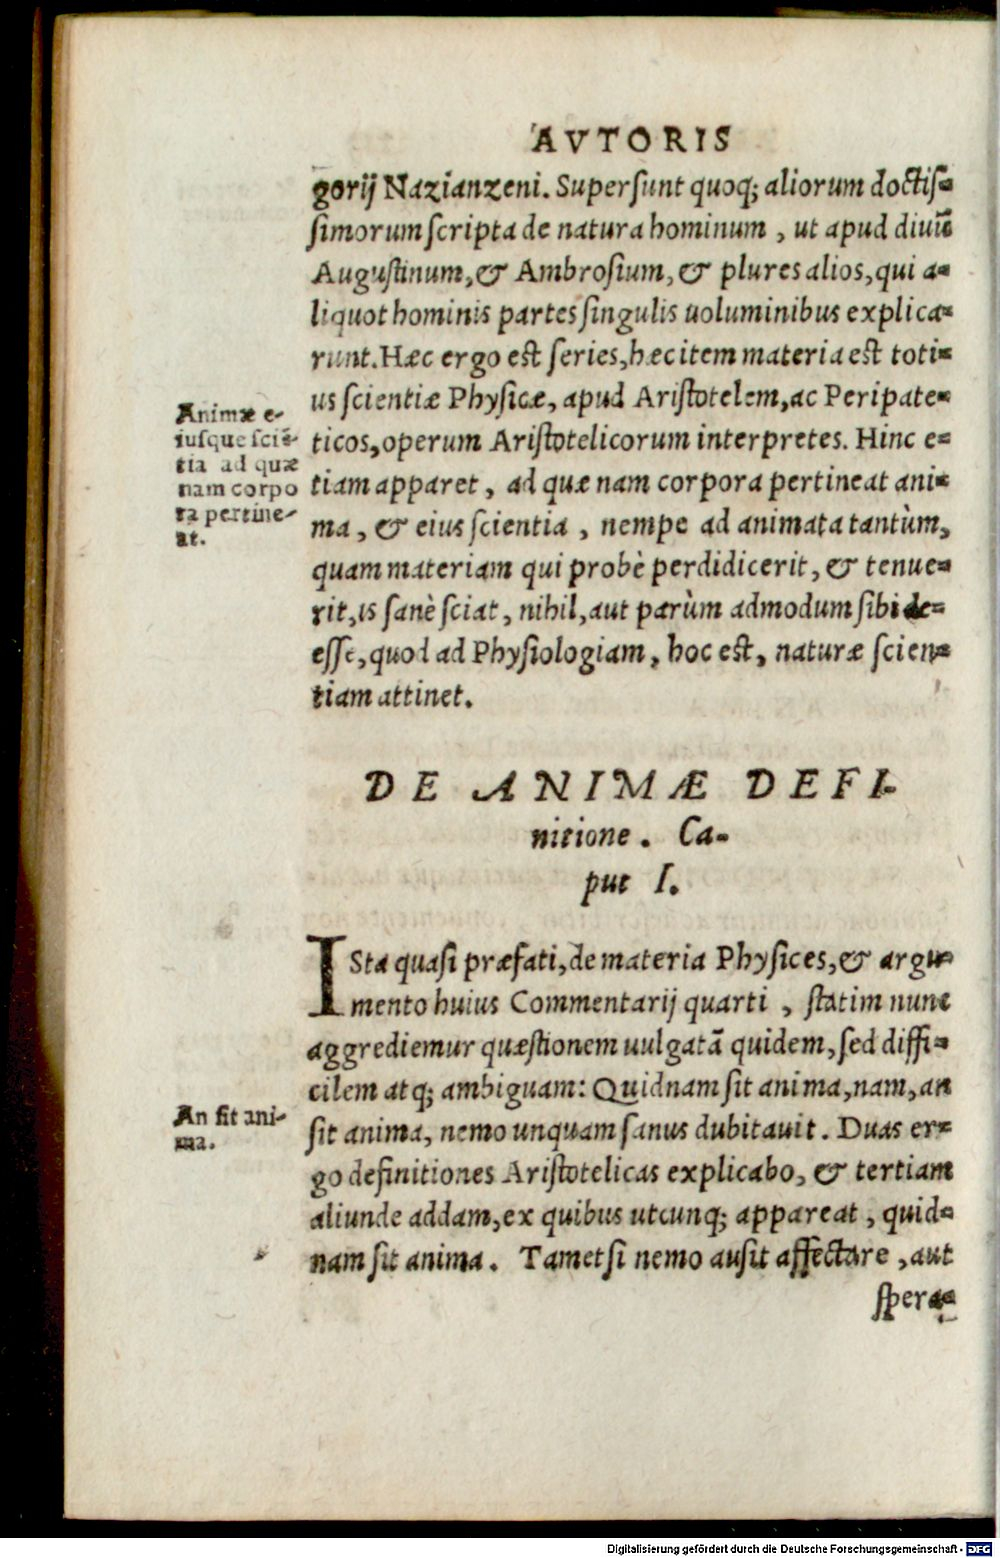 AVTORIS
gorij Nazianzeni. Superſunt quoq; aliorum doctiſ-
ſimorum ſcripta de natura hominum, ut apud diuū
Auguſtinum, & Ambroſium, & plures alios, qui a-
liquot hominis partes ſingulis uoluminibus explica-
runt. Hæc ergo est ſeries, hæc item materia est toti-
us ſcientiæ Phyſicæ, apud Ariſtotelem, ac Peripate-
ticos, operum Ariſtotelicorum interpretes. Hinc e-
tiam apparet, ad quæ nam corpora pertineat ani-
ma, & eius ſcientia, nempe ad animata tantùm,
quam materiam qui probè perdidicerit, & tenue-
rit, is ſanè ſciat, nihil, aut parùm admodum ſibi de-
eſſe, quod ad Phyſiologiam, hoc est, naturæ ſcien-
tiam attinet.
Animæ e-
iuſque ſciē-
tia ad quæ
nam corpo
ra pertine-
at.
DE ANIMÆ DEFI-
nitione. Ca-
put I.
ISta quaſi præfati, de materia Phyſices, & argu-
mento huius Commentarij quarti, ſtatim nunc
aggrediemur quæſtionem uulgatā quidem, ſed diffi-
cilem atq; ambiguam: Quidnam ſit anima, nam, an
ſit anima, nemo unquam ſanus dubitauit. Duas er-
go definitiones Ariſtotelicas explicabo, & tertiam
aliunde addam, ex quibus utcunq; appareat, quid-
nam ſit anima. Tametſi nemo auſit affectare, aut
ſpera-
An ſit ani-
ma.
Digitalisierung gefördert durch die Deutsche Forschungsgemeinschaft - DFG